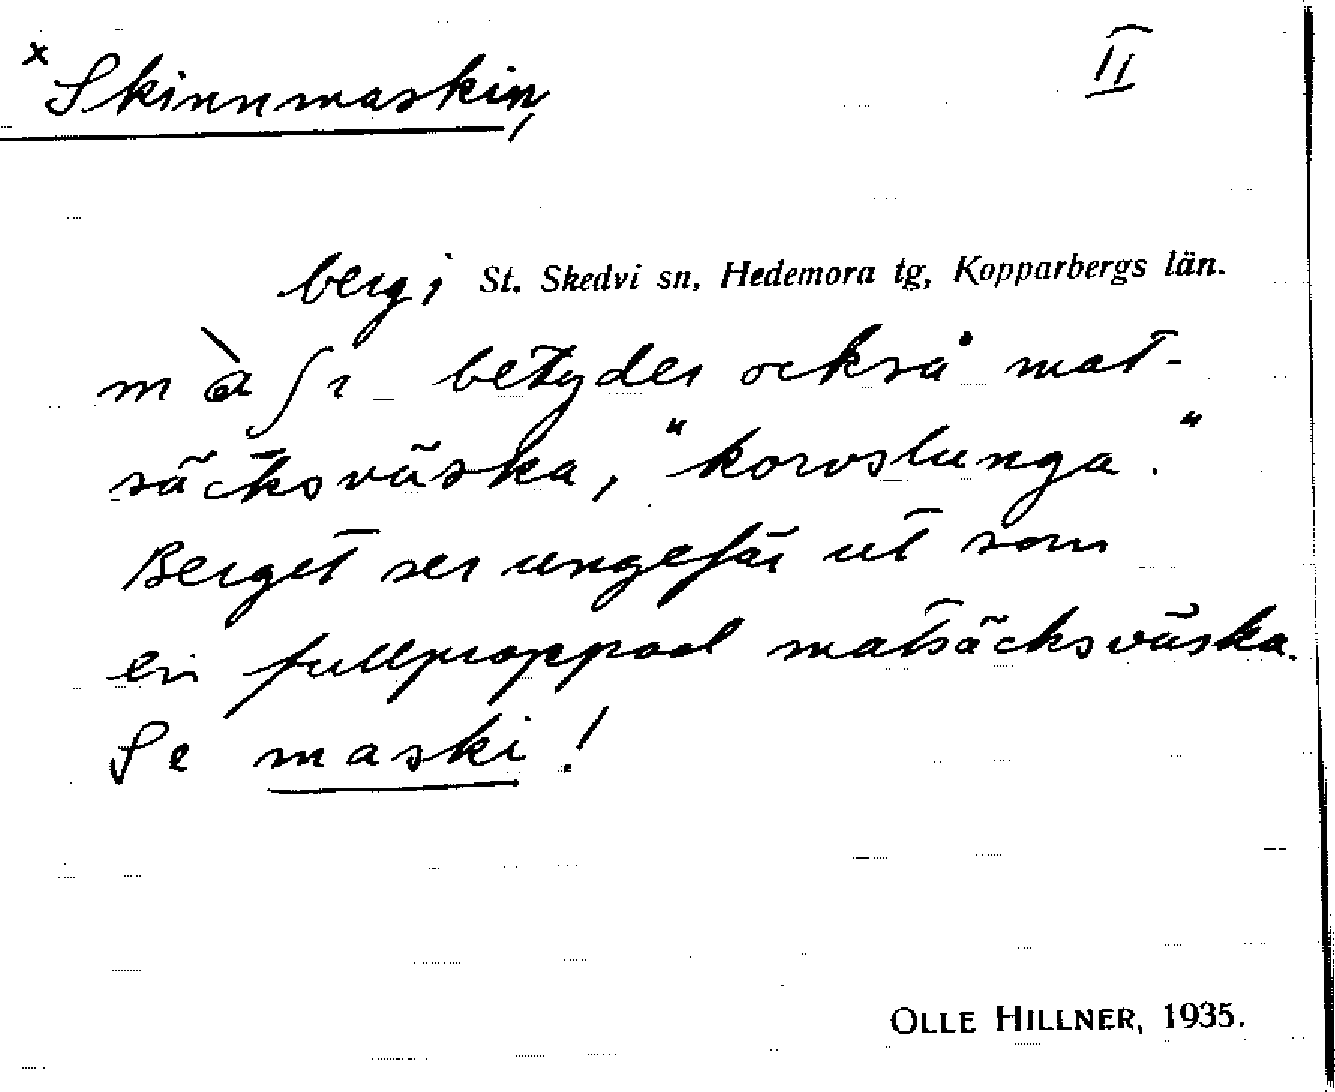 × Skinnmaskin,
II
berg i St. Skedvi sn, Hedemora tg, Kopparbergs län.
màʃɩ betyder också mat-
säcksväska, "korvslunga."
Berget ser ungefär ut som
en fullproppad matsäcksväska.
Se maski!
OLLE HILLNER, 1935.